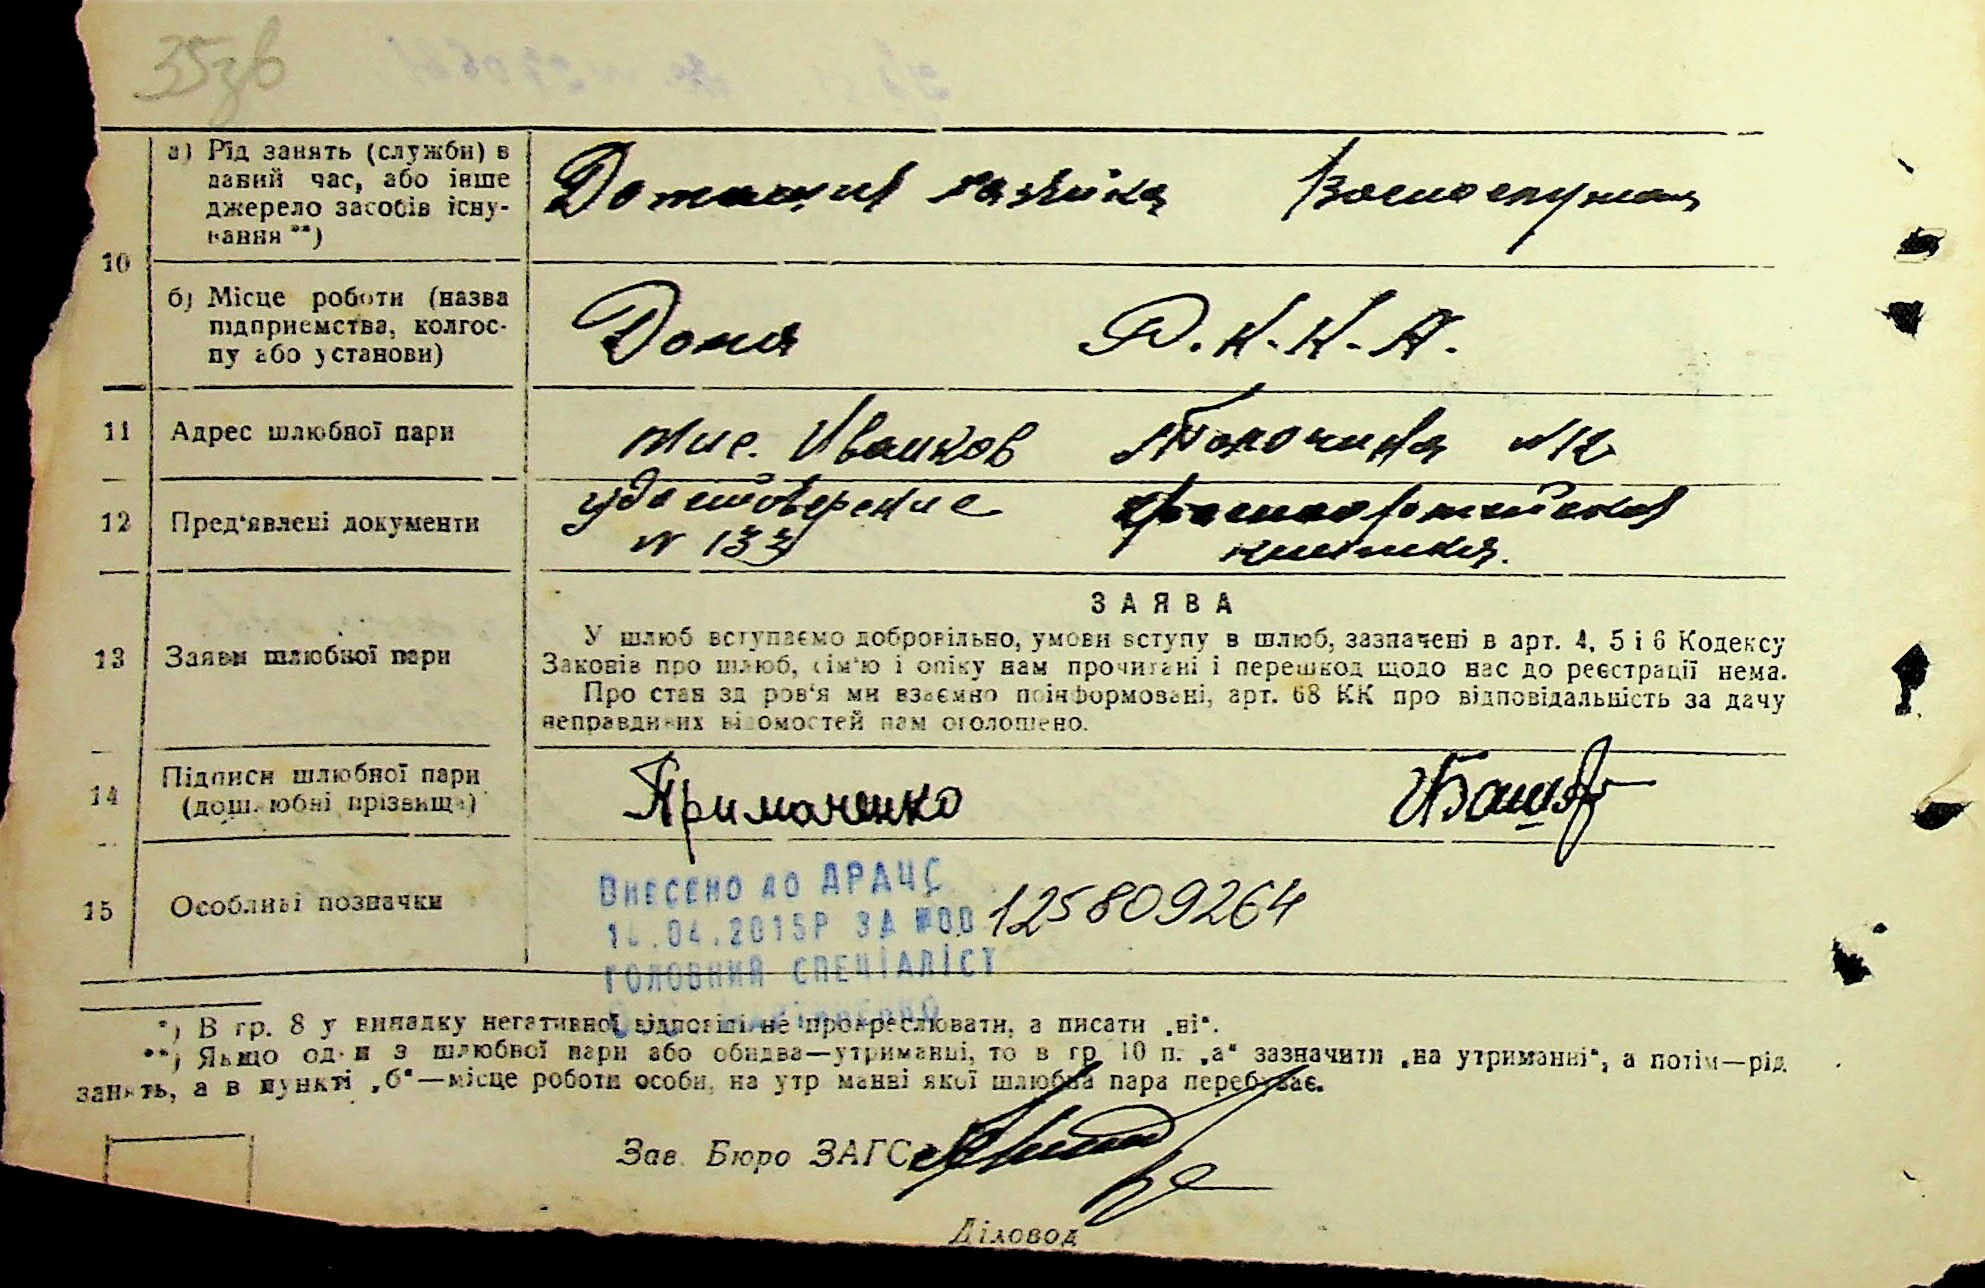 35зв
10
а) Рід занять (служби) в
даний час, або інше
джерело засобів існу-
вання **)
Домашняя хозяйка Военослужащ
б) Місце роботи (назва
підприємства, колгос-
пу або установи)
Дома Р.К.К.А.
11 Адрес шлюбної пари
м. Иванков №12
12 Пред'явлені документи
удостоверение
№ 133
красноармейская
книжка.
13 Заяви шлюбної пари
ЗАЯВА
У шлюб вступаємо добровільно, умови вступу в шлюб, зазначені в арт. 4, 5 і 6 Кодексу
Законів про шлюб, сім'ю і опіку нам прочитані і перешкод щодо нас до реєстрації нема.
Про стан здоров'я ми взаємно поінформовані, арт. 68 КК про відповідальність за дачу
неправдивих відомостей нам оголошено.
14 Підписи шлюбної пари
(дошлюбні прізвища)
Примаченко
15 Особливі позначки
ВНЕСЕНО ДО ДРАЦС
.04.2015Р ЗА №00 125809264
ГОЛОВНИЙ СПЕЦІАЛІСТ
*) В гр. 8 у випадку негативної відповіді не прокреслювати, а писати „ні“.
**) Якщо один з шлюбної пари або обидва—утриманці, то в гр. 10 п. „а“ зазначити „на утриманні“, а потім—рід
занять, а в пункті „б“—місце роботи особи, на утриманні якої шлюбна пара перебуває.
Зав. Бюро ЗАГС
Діловод